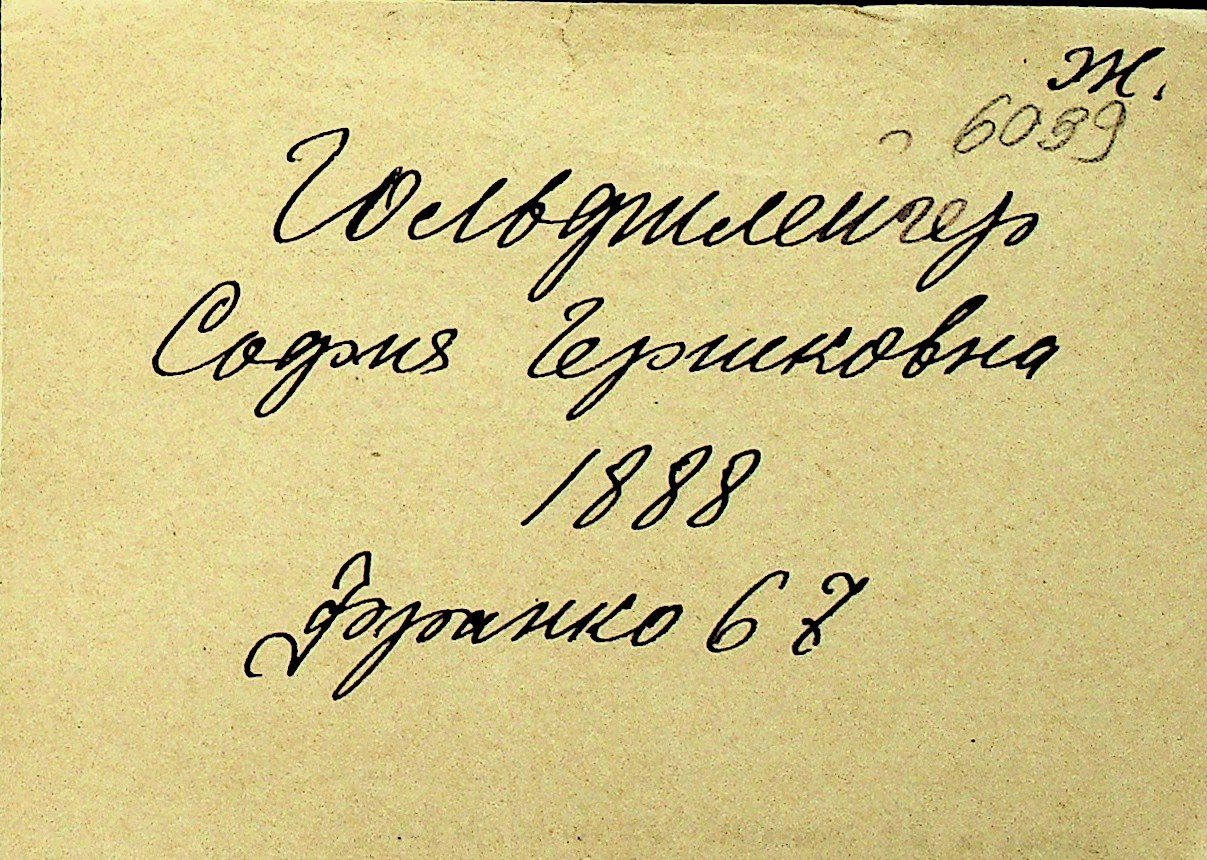 Ж.
6099
Гольдшлегер
София Гершковна
1888
Франко 67